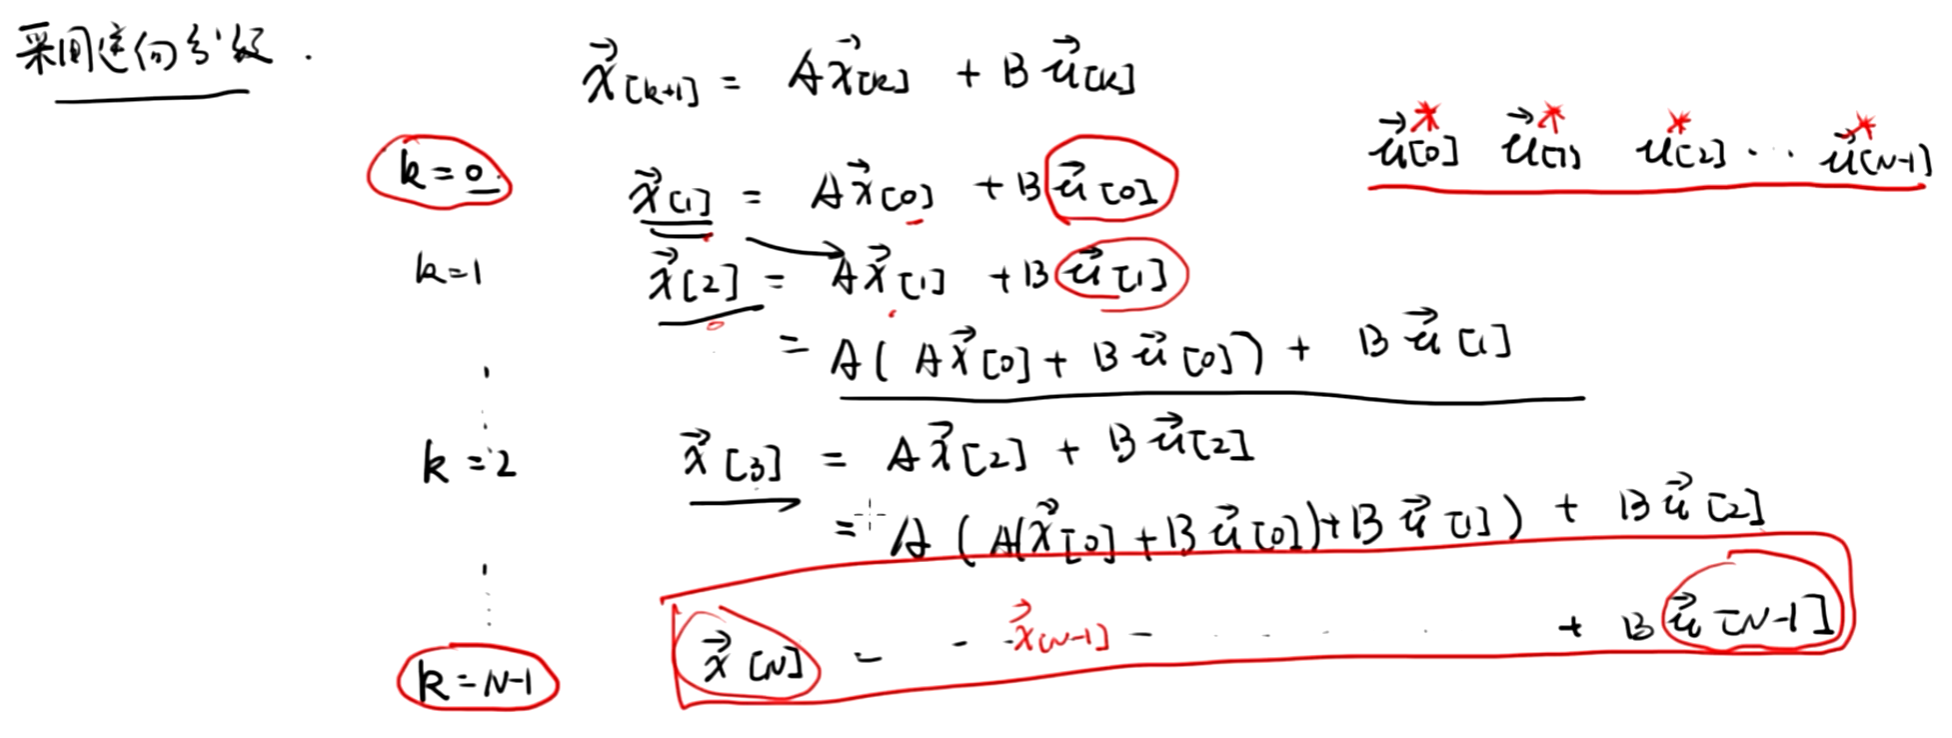 采用逆向分级.
x⃗[k+1] = Ax⃗[k] + Bu⃗[k]
u⃗*[0] u⃗*[1] u*[2] ... u⃗*[N-1]
k=0 x⃗[1] = Ax⃗[0] + Bu⃗[0]
k=1 x⃗[2] = Ax⃗[1] + Bu⃗[1]
= A(Ax⃗[0] + Bu⃗[0]) + Bu⃗[1]
k=2 x⃗[3] = Ax⃗[2] + Bu⃗[2]
= A(A(x⃗[0] + Bu⃗[0]) + Bu⃗[1]) + Bu⃗[2]
k=N-1 x⃗[N] = - x⃗[N-1] - ... + Bu⃗[N-1]